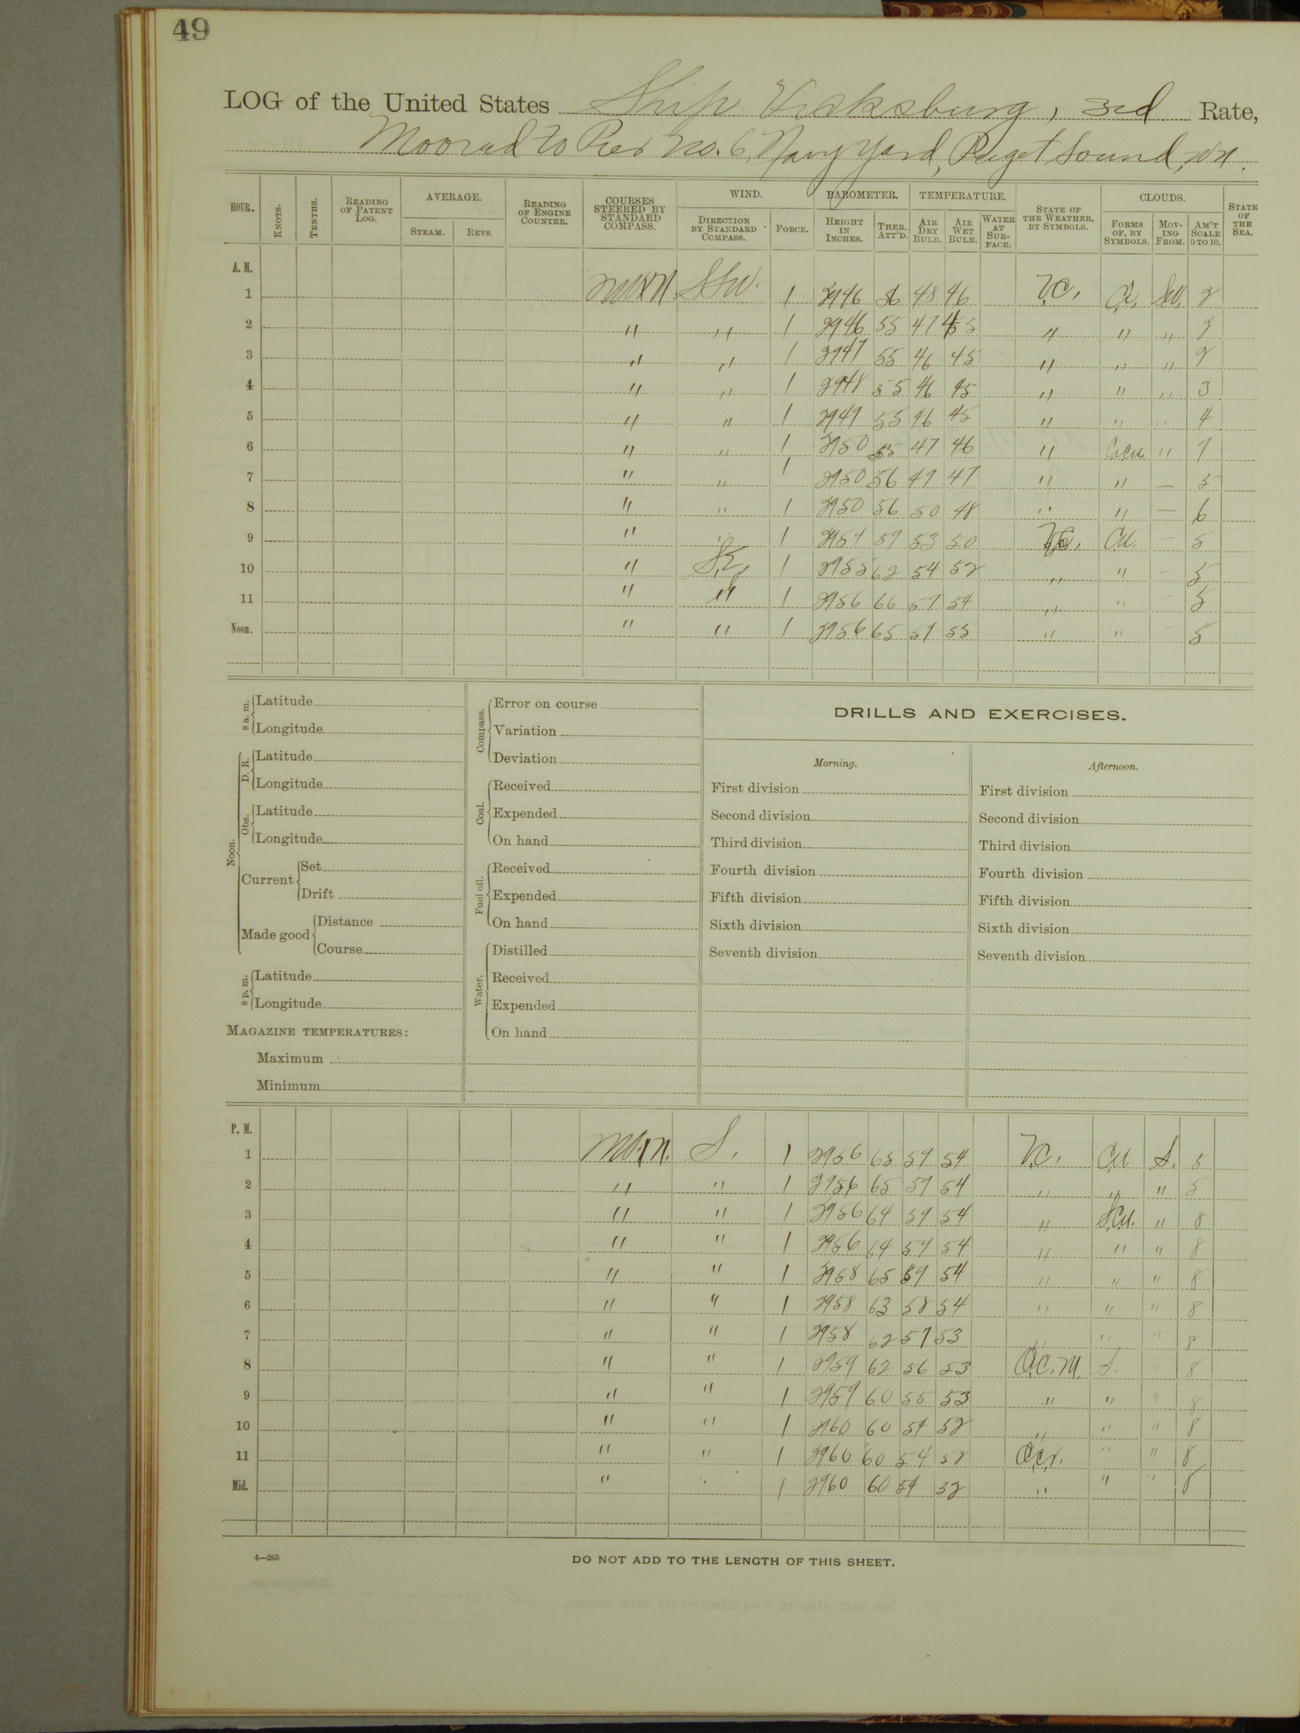 49
LOG of the United States Ship Vicksburg, 3rd Rate,
Moored to Pier No. 6, Navy Yard, Puget Sound, Wn.
HOUR. KNOTS. TENTHS. READING OF PATENT LOG. AVERAGE. STEAM. REVS. READING OF ENGINE COUNTER. COURSES STEERED BY STANDARD COMPASS. WIND. DIRECTION BY STANDARD COMPASS. FORCE. BAROMETER. HEIGHT IN INCHES. THER. ATT'D. TEMPERATURE. AIR DRY BULB. AIR WET BULB. WATER AT SURFACE. STATE OF THE WEATHER, BY SYMBOLS. CLOUDS. FORMS OF, BY SYMBOLS. MOVING FROM. AM'T SCALE 0 TO 10. STATE OF THE SEA.
A. M.
1 SSW. 1 2946 56 48 46 b.c. Ci. SW. 2
2 " " 1 2946 55 47 45 " " " 2
3 " " 1 2947 55 46 45 " " " 2
4 " " 1 2948 55 46 45 " " " 3
5 " " 1 2949 55 46 45 " " " 4
6 " " 1 2950 55 47 46 " Ci.cu. " 7
7 " " 1 2950 56 49 47 " " — 5
8 " " 1 2950 56 50 48 " " — 6
9 " " 1 2954 59 53 50 b.c. Cu. — 5
10 " SE. 1 2955 62 54 52 " " — 5
11 " " 1 2956 66 57 54 " " — 5
Noon. " " 1 2956 65 59 55 " " — 5
8 a. m. Latitude
Longitude
Noon. D. R. Latitude
Longitude
Obs. Latitude
Longitude
Current Set
Drift
Made good Distance
Course
8 p. m. Latitude
Longitude
MAGAZINE TEMPERATURES:
Maximum
Minimum
Compass. Error on course
Variation
Deviation
Coal. Received
Expended
On hand
Fuel oil. Received
Expended
On hand
Water. Distilled
Received
Expended
On hand
DRILLS AND EXERCISES.
Morning.
First division
Second division
Third division
Fourth division
Fifth division
Sixth division
Seventh division
Afternoon.
First division
Second division
Third division
Fourth division
Fifth division
Sixth division
Seventh division
P. M.
1 S. 1 2956 65 59 54 b.c. Cu. S. 5
2 " " 1 2956 65 59 54 " " " 5
3 " " 1 2956 64 59 54 " S.Cu. " 8
4 " " 1 2956 64 59 54 " " " 8
5 " " 1 2958 65 59 54 " " " 8
6 " " 1 2958 63 58 54 " " " 8
7 " " 1 2958 62 57 53 " " " 8
8 " " 1 2959 62 56 53 O.c.m. S. " 8
9 " " 1 2959 60 55 53 " " " 8
10 " " 1 2960 60 54 52 " " " 8
11 " " 1 2960 60 54 52 O.c.r. " " 8
Mid. " " 1 2960 60 54 52 " " " 8
4—265
DO NOT ADD TO THE LENGTH OF THIS SHEET.